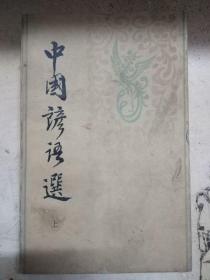 中國諺語選
上